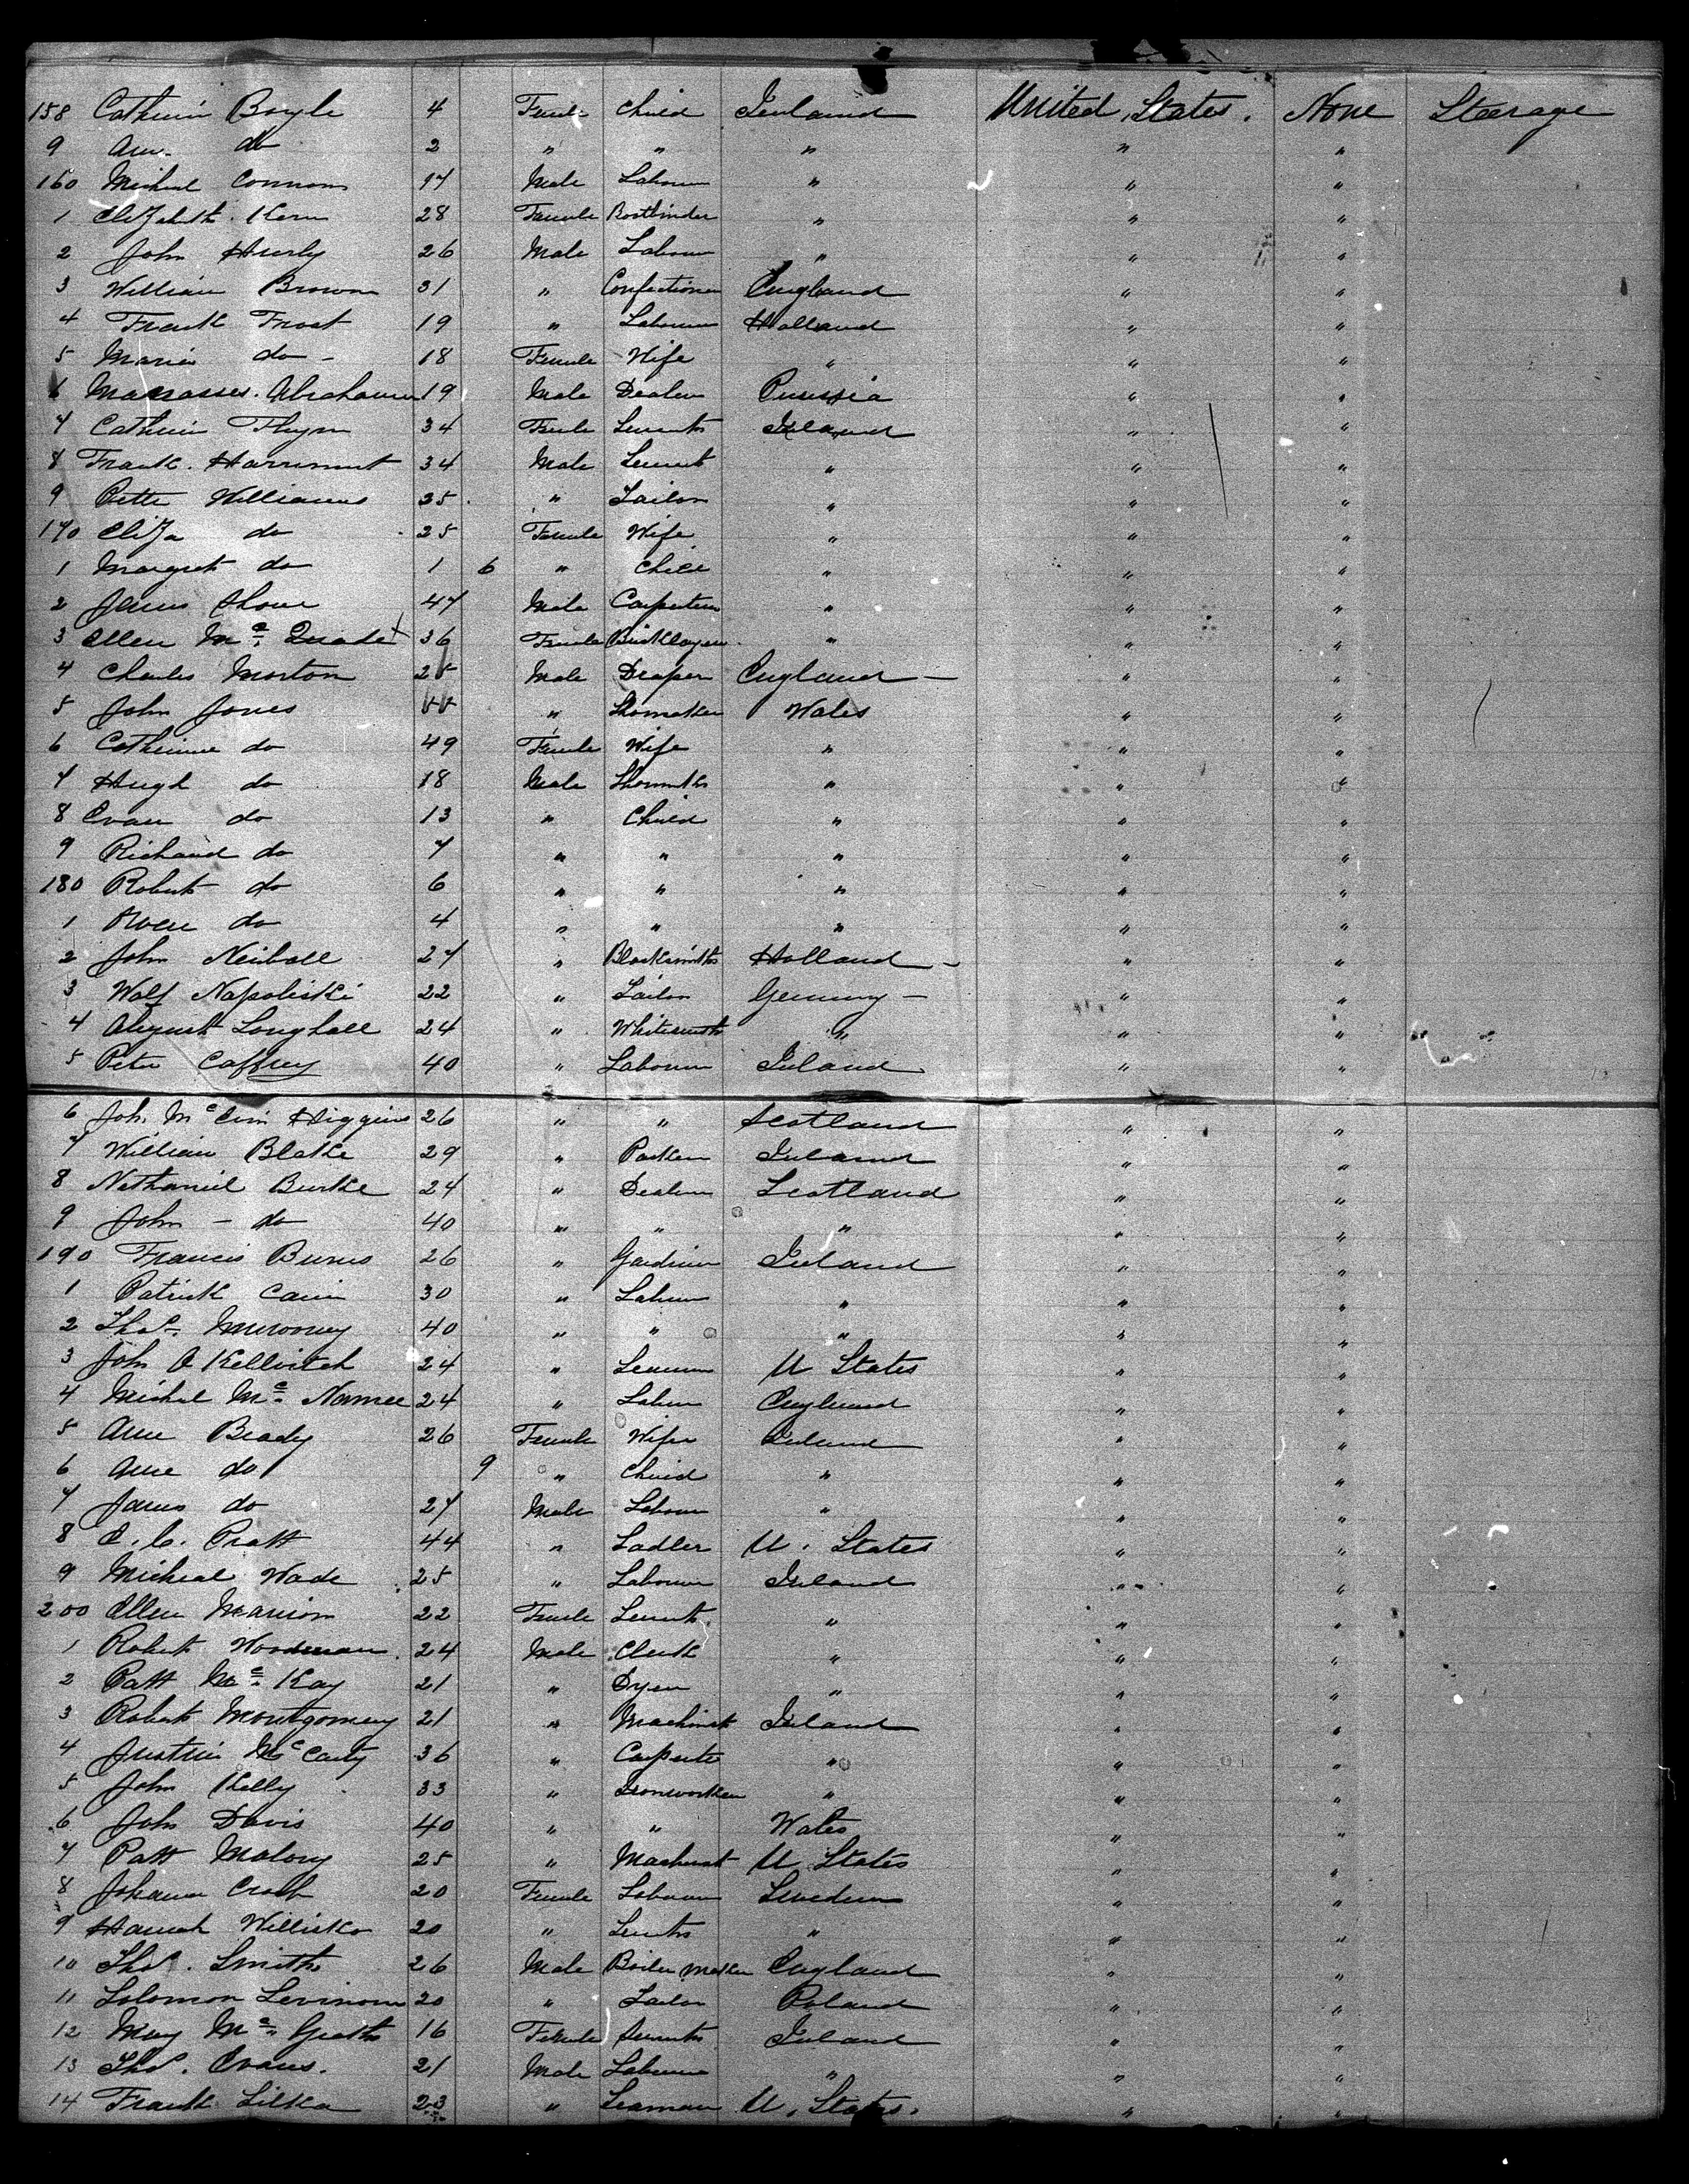 158 Cathrin Boyle 4 Female Child Ireland United States. None Steerage
9 Ann do 2 " " " " "
160 Michael Connors 17 Male Labourer " " "
1 Elizabeth Kern 28 Female Bootbinder " " "
2 John Hurly 26 Male Labourer " " "
3 William Brown 31 " Confectioner England " "
4 Frank Frost 19 " Labourer Holland " "
5 Maria do - 18 Female Wife " " "
6 Manasses Abraham 19 Male Dealer Prussia " "
7 Cathrin Flynn 34 Female Servants Ireland " "
8 Frank 34 Male Servant " " "
9 Williams 35 " Tailor " " "
170 Eliza do 25 Female Wife " " "
1 Margret do 1 6 " Child " " "
2 James Shone 47 Male Carpenter " " "
3 Ellen Mc Quade 36 Female Bricklayer " " "
4 Charles Morton 25 Male Draper England " "
5 John Jones 55 " Shomaker Wales " "
6 Catherine do 49 Female Wife " " "
7 Hugh do 18 Male " " "
8 Evan do 13 " Child " " "
9 Richard do 7 " " " " "
180 Robert do 6 " " " " "
1 Owen do 4 " " " " "
2 John 27 " Blacksmiths Holland " "
3 Wolf Napoliski 22 " Tailor Germany " "
4 August Longhall 24 " Whitesmith " " "
5 Peter Caffrey 40 " Labourer Ireland " "
6 Joh. Mc Higgins 26 " " Scotland " "
7 William Blake 29 " Packer Ireland " "
8 Nathaniel Burke 24 " Dealer Scotland " "
9 John - do 40 " " " " "
190 Francis Burns 26 " Gardiner Ireland " "
1 Patrick Cain 30 " Labourer " " "
2 Thos. 40 " " " " "
3 John O Kellvitch 24 " Seaman U States " "
4 Michal Mc Namee 24 " Labourer England " "
5 Anne Brady 26 Female Wife Ireland " "
6 Anne do 9 " Child " " "
7 James do 27 Male Labourer " " "
8 C. C. Pratt 44 " Sadler U. States " "
9 Micheal Wade 25 " Labourer Ireland " "
200 Ellen Marion 22 Female Servants " " "
1 Robert Woodman 24 Male Clerk " " "
2 Patt Mc Kay 21 " Dyer " " "
3 Robert Montgomery 21 " Machinist Ireland " "
4 Justin Mc Carty 36 " Carpenter " " "
5 John Kelly 33 " Ironworker " " "
6 John Davis 40 " " Wales " "
7 Patt Malony 25 " Machinist U States " "
8 Johanna 20 Female Labourer Sweden " "
9 Hannah 20 " Servants " " "
10 Thos. Smith 26 Male Boiler Maker England " "
11 Solomon 20 " Tailor Poland " "
12 Mary Mc Grath 16 Female Servants Ireland " "
13 Thos. Evans. 21 Male Labourer " " "
14 Frank Lilka 23 " Seaman U. States. " "